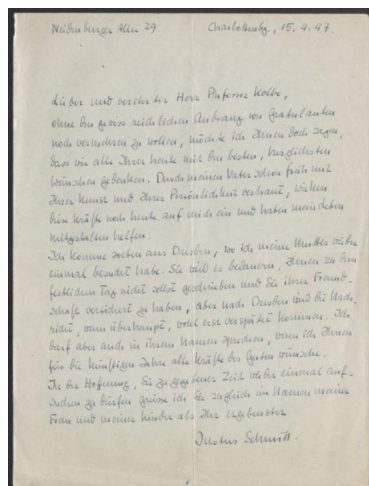 Neidenburger Allee 29. Charlottenbg., 15.4.47.
Lieber und verehrter Herr Professor Kolbe,
ohne den gewiss reichlichen Andrang von Gratulanten
noch vermehren zu wollen, möchte ich Ihnen doch sagen,
dass wir alle Ihrer heute mit den besten, herzlichsten
Wünschen gedenken. Durch meinen Vater schon früh mit
Ihrer Kunst und Ihrer Persönlichkeit vertraut, wirken
diese Kräfte noch heute auf mich ein und haben mein Leben
mitgestalten helfen.
Ich komme soeben aus Dresden, wo ich meine Mutter wieder
einmal besucht habe. Sie wird es bedauern, Ihnen zu dem
festlichen Tag nicht selbst geschrieben und Sie ihrer Freund-
schaft versichert zu haben, aber nach Dresden wird die Nach-
richt, wenn überhaupt, wohl erst verspätet kommen. Ich
darf aber auch in ihrem Namen sprechen, wenn ich Ihnen
für die künftigen Jahre alle Kräfte des Guten wünsche.
In der Hoffnung, Sie zu gegebener Zeit wieder einmal auf-
suchen zu dürfen grüsse ich Sie zugleich im Namen meiner
Frau und meiner Kinder als Ihr ergebenster
Justus Schmitt.